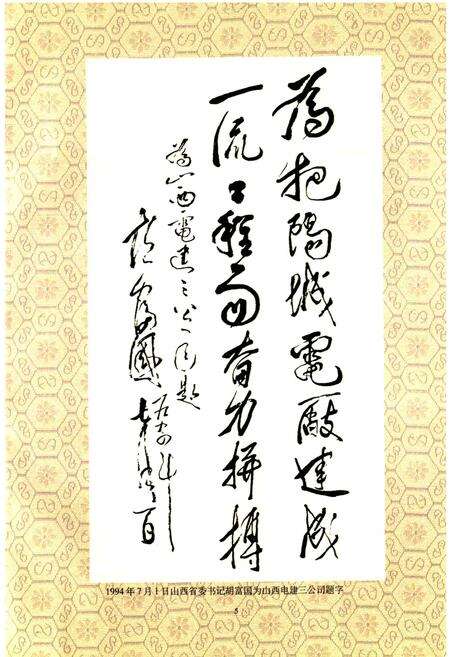 為把陽城電廠建成
一流工程而奋力拼搏
為山西電建三公司題
胡富國 一九九四年
七月一日
1994年7月1日山西省委书记胡富国为山西电建三公司题字
5